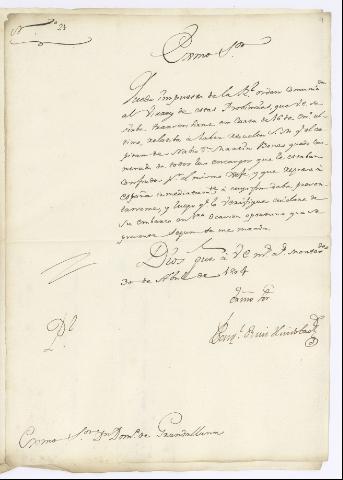 N.º 21
Exmo Sor
Quedo impuesto de la Rl orden comunicada
al Virrey de estas Provincias, que V.E. se
sirbe transcribirme en carta de 16 de En.º ul
timo, relatiba a haber resuelto S.M. q.e el ca
pitan de Nabio Dn Martin Boneo quede exo
nerado de todos los encargos que le estaban
conferidos p.r el mismo Xefe, y que regrese a
España inmediatamente a cuyo fin deba presen
tarseme, y luego q.e lo verifique cuidare de
su embarco en 1.ra ocasion oportuna que se
presente segun se me manda.
Dios gue a V.E. m.s a.s Montevideo
30 de Abril de 1804
Exmo Sor
Exmo Sor Dn Dom.º de Grandallana